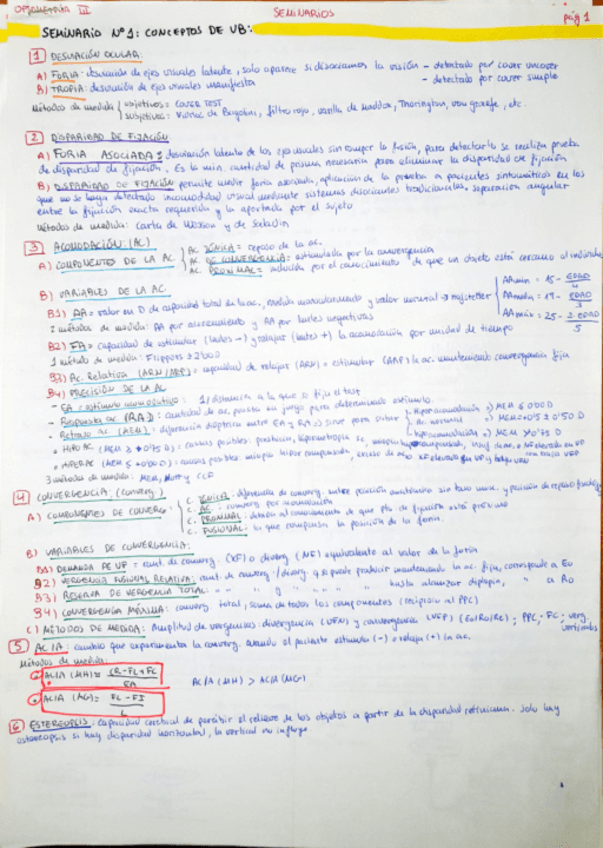 OPTOMETRÍA III SEMINARIOS pág 1
SEMINARIO Nº1: CONCEPTOS DE VB:
1 DESVIACIÓN OCULAR:
A) FORIA: desviación de ejes visuales latente, solo aparece si disociamos la visión – detectado por cover uncover
B) TROPIA: desviación de ejes visuales manifiesta – detectado por cover simple
Métodos de medida objetivos: COVER TEST
subjetivos: Vidrios de Bagolini, filtro rojo, varilla de Maddox, Thorington, von graefe, etc.
2 DISPARIDAD DE FIJACIÓN:
A) FORIA ASOCIADA: desviación latente de los ejes visuales sin romper la fusión, para detectarlo se realiza prueba
de disparidad de fijación. Es la min. cantidad de prisma necesaria para eliminar la disparidad de fijación
B) DISPARIDAD DE FIJACIÓN permite medir foria asociada, aplicación de la prueba a pacientes sintomáticos en los
que no se haya detectado incomodidad visual mediante sistemas disociantes tradicionales, separación angular
entre la fijación exacta requerida y la aportada por el sujeto
Métodos de medida: Carta de Wesson y de Saladin
3 ACOMODACIÓN: (AC)
A) COMPONENTES DE LA AC.
AC TÓNICA = reposo de la ac.
AC DE CONVERGENCIA = estimulada por la convergencia
AC. PROXIMAL = inducida por el conocimiento de que un objeto está cercano al individuo
B) VARIABLES DE LA AC.
B1) AA = valor en D de capacidad total de la ac., medida monocularmente y valor normal → Hofstetter
AAmin = 15 - EDAD/4
AAmedia = 19 - EDAD/3
AAmáx = 25 - 2·EDAD/5
2 métodos de medida: AA por acercamiento y AA por lentes negativas
B2) FA = capacidad de estimular (lentes -) y relajar (lentes +) la acomodación por unidad de tiempo
1 método de medida: Flippers ±2'00
B3) Ac. Relativa (ARN/ARP) = capacidad de relajar (ARN) o estimular (ARP) la ac. manteniendo convergencia fija
B4) PRECISIÓN DE LA AC
- EA (estímulo acomodativo): 1/distancia a la que se fija el test
- Respuesta ac. (RA): cantidad de ac. puesta en juego para determinado estímulo.
- Retraso ac. (MEM): diferencia dióptrica entre EA y RA
- HIPO AC
- HIPERAC
3 métodos de medida: MEM, Nott y CCF
4 CONVERGENCIA: (Converg)
A) COMPONENTES DE CONVERG:
C. TÓNICA: diferencia de converg. entre posición anatómica
C. AC: converg por acomodación
C. PROXIMAL: debida al conocimiento de que pto de fijación está próximo
C. FUSIONAL: lo que compensa la posición de la foria.
B) VARIABLES DE CONVERGENCIA:
B1) DEMANDA DE VF = cant. de converg. o diverg equivalente al valor de la foria
B2) VERGENCIA FUSIONAL RELATIVA: cant. de converg/diverg q se puede producir manteniendo la ac. fija, corresponde a
B3) RESERVA DE VERGENCIA TOTAL: " " " " " " " hasta alcanzar diplopia, " a Ro
B4) CONVERGENCIA MÁXIMA: converg. total, suma de todos los componentes (recíproco al PPC)
C) MÉTODOS DE MEDIDA: Amplitud de vergencias: divergencia (VFN) y convergencia (VFP); PPC; FC; verg. verticales
5 AC/A: cambio que experimenta la converg. cuando el paciente estimula (-) o relaja (+) la ac.
Métodos de medida:
AC/A (MH) = CR-FL+FC / EA AC/A (MH) > AC/A (MG)
AC/A (MG) = FL-FI / L
6 ESTEREOPSIS: capacidad cerebral de percibir el relieve de los objetos a partir de la disparidad retiniana. Solo hay
estereopsis si hay disparidad horizontal, la vertical no influye